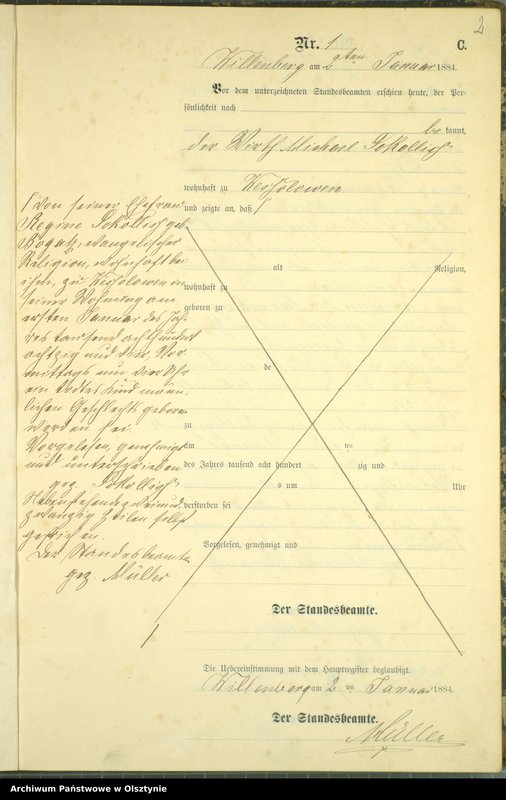 2
Nr. 1 C.
Willenberg am 2ten Januar 1884.
Vor dem unterzeichneten Standesbeamten erschien heute, der Per-
sönlichkeit nach
be kannt,
der Wirth Michael Sokollisch
wohnhaft zu
und zeigte an, daß
von seiner Ehefrau
Regine Sokollisch geb.
Bogatz, evangelischer
Religion, wohnhaft bei
ihm, zu in
seiner Wohnung am
ersten Januar des Jah-
res tausend achthundert
achtzig und vier, Vor-
mittags um vier Uhr
ein todtes Kind männ-
lichen Geschlechts geboren
worden sei.
Vorgelesen, genehmigt
und unterschrieben
gez. Sokollisch
Nebenstehende
zwanzig Zeilen
gestrichen.
Der Standesbeamte
gez. Müller
alt Religion,
wohnhaft zu
geboren zu
de
zu
am ten
des Jahres tausend acht hundert zig und
s um Uhr
verstorben sei
Vorgelesen, genehmigt und
Der Standesbeamte.
Die Uebereinstimmung mit dem Hauptregister beglaubigt.
Willenberg am 2 ten Januar 1884.
Der Standesbeamte.
Müller
Archiwum Państwowe w Olsztynie